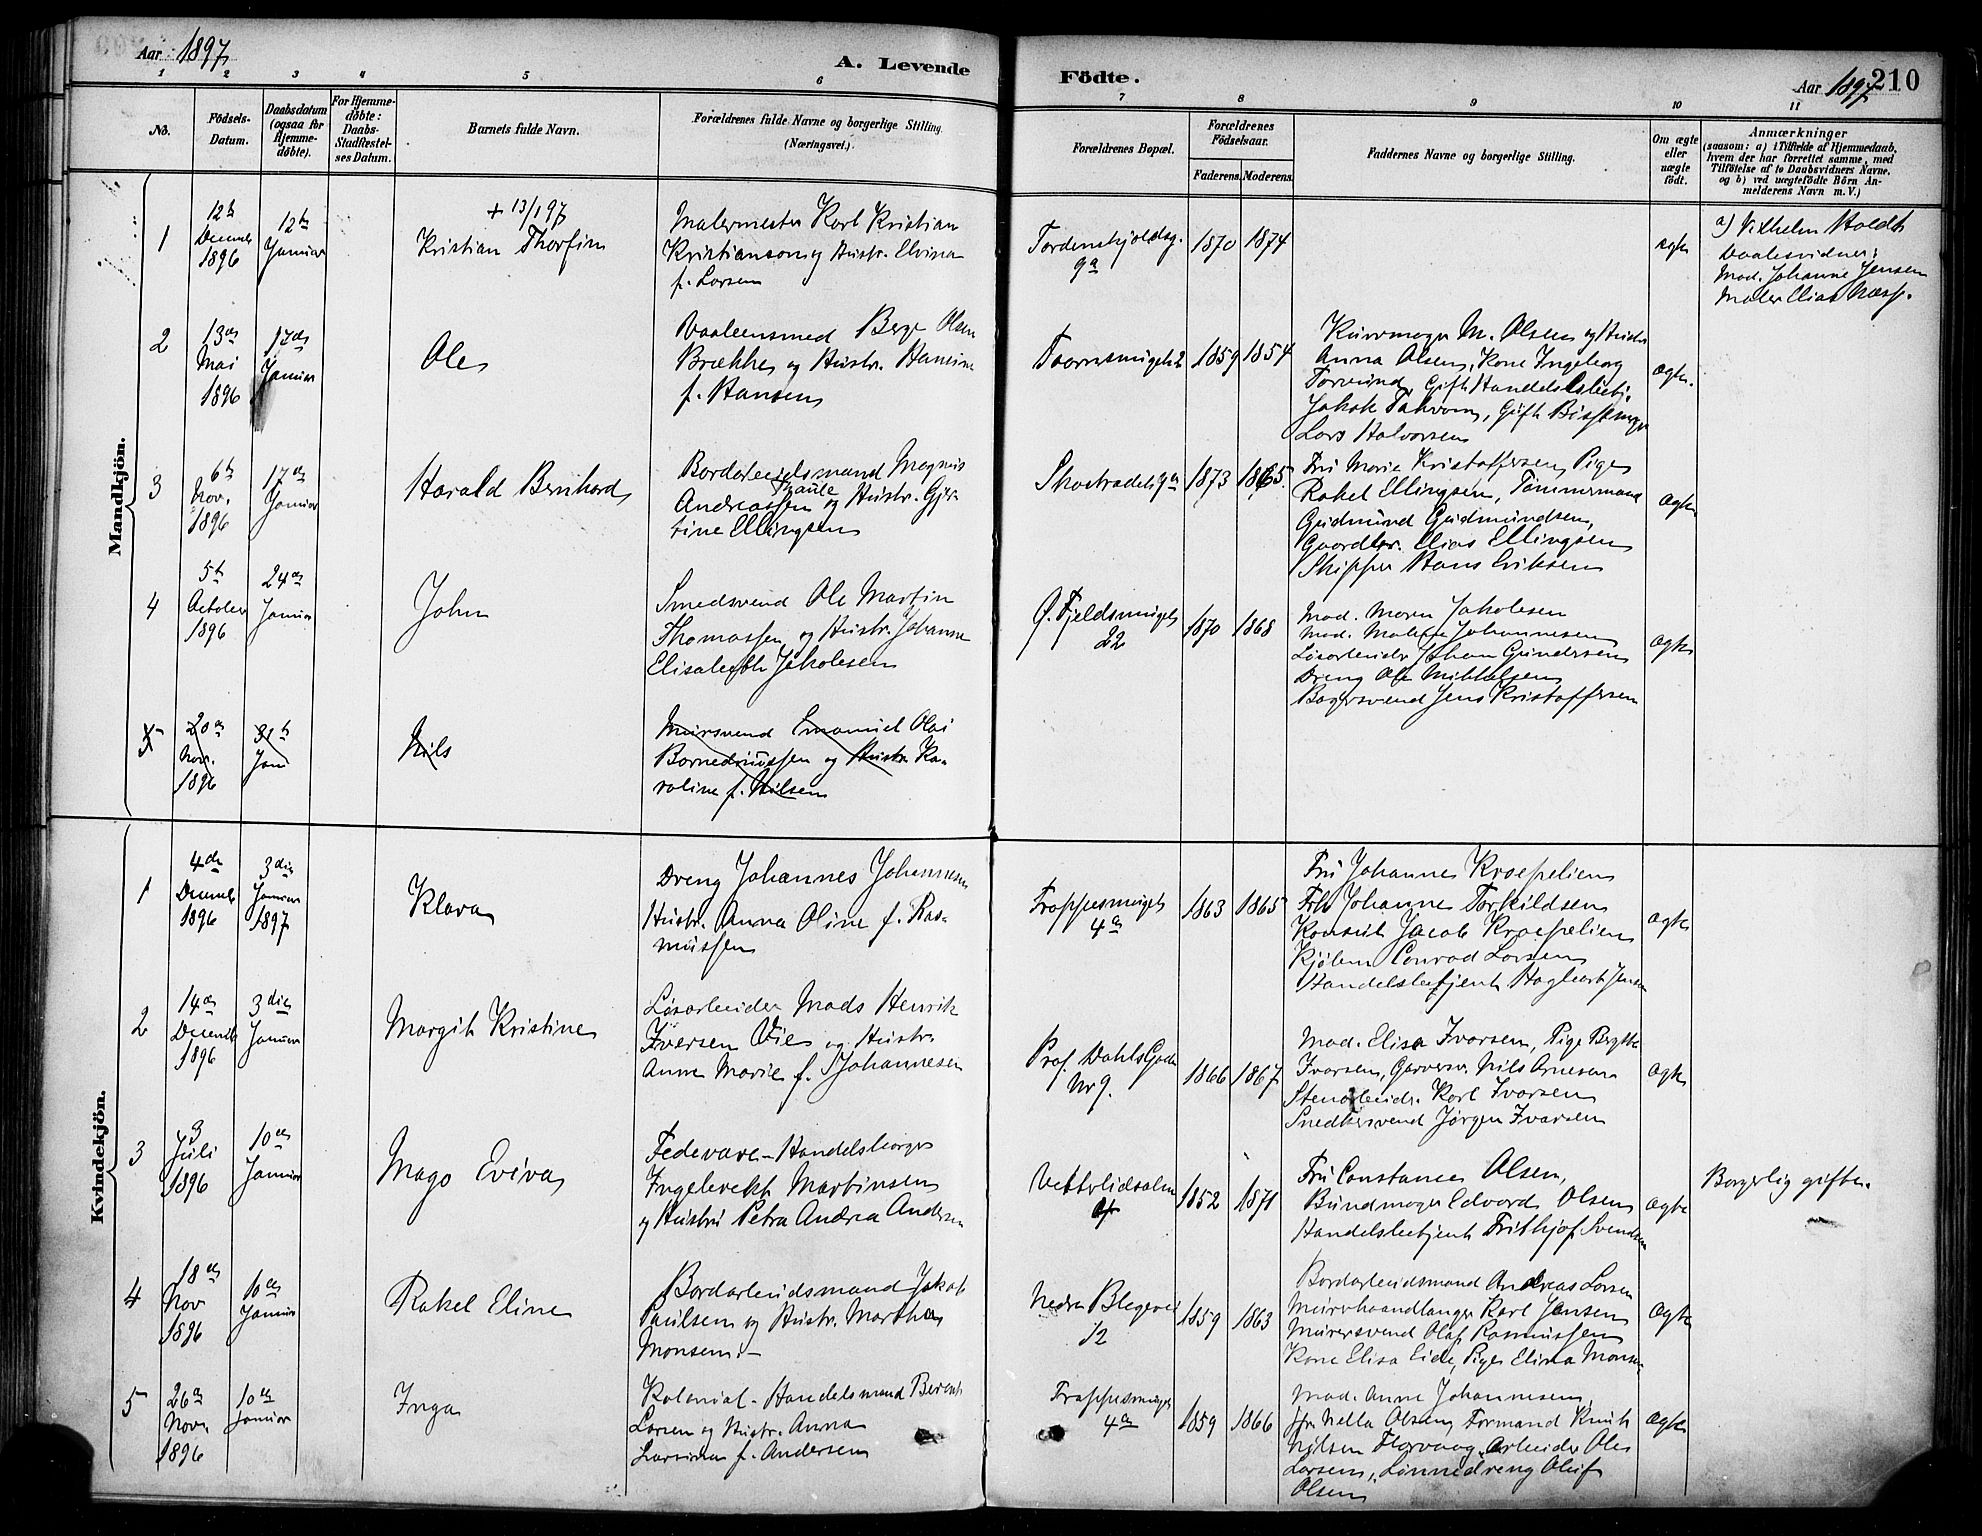 Aar 1897
A. Levende
Födte.
Aar 1897
210
1 2 3 4 5 6 7 8 9 10 11
No.
Födsels-
Datum.
Daabsdatum
(ogsaa for
Hjemme-
døbte).
For Hjemme-
døbte:
Daabs-
Stadfæstel-
ses Datum.
Barnets fulde Navn.
Forældrenes fulde Navne og borgerlige Stilling.
(Næringsvei.)
Forældrenes Bopæl.
Forældrenes
Födselsaar.
Faderens. Moderens.
Faddernes Navne og borgerlige Stilling.
Om ægte
eller
uægte
født.
Anmærkninger
(saasom: a) i Tilfælde af Hjemmedaab,
hvem der har forrettet samme, med
Tilföielse af to Daabsvidners Navne,
og b) ved uægtefödte Börn An-
melderens Navn m. V.)
Mandkjön.
1
12te
Decemb
1896
12te
Januar
+ 13/1 97
Kristian Thorfin
Malermester Karl Kristian
Kristianson og Hustr. Elvina
f. Larsen
Tordenskjoldsg.
9a
1870 1874
ægte
a) Vilhelm Holdt
Daabsvidner:
Mad. Johanne Jensen
Maler Elias Næss.
2
13de
Mai
1896
17de
Januar
Ole
Berge Olsen
Brække og Hustr. Hansine
f. Hansen
Taarnsmuget 2
1859 1854
Kurvmager M. Olsen og Hustr
Anna Olsen, Kone Ingeborg
Jakob
Lars Halvorsen
ægte.
3
6te
Nov.
1896
17de
Januar
Harald Bernhard
Bordarbeidsmand Magnus
Andreassen og Hustr. Gjer-
tine Ellingsen
Skostrædet 9a
1873 1865
Fru Marie Kristoffersen, Pige
Rakel Ellingsen, Tømmermand
Gudmund Gudmundsen,
Gaardbr. Elias Ellingsen
Skipper Hans Eriksen
ægte
4
5te
October
1896
24de
Januar
John
Smedsvend Ole Martin
Thomassen og Hustr. Johanne
Elisabeth Jakobsen
Ø. Fjeldsmuget
22
1870 1868
Mad. Maren Jakobsen
Mad. Malene Johannesen
Løsarbeider Johan Gundersen
Dreng Ole Mikkelsen
Bagersvend Jens Kristoffersen
ægte
5
20de
Nov.
1896
31te
Jan
Nils
Mursvend Emanuel Olai
og Hustr. Ka-
roline f. Nilsen
Kvindekjön.
1
4de
Decemb
1896
3die
Januar
1897
Klara
Dreng Johannes Johannesen
Hustr. Anna Oline f. Ras-
mussen
Trappesmuget
4a
1863 1865
Fru Johannes Kroepelien
Frk Johanne Torkildsen
Konsul Jacob Kroepelien
Kjølem Conrad Larsen
Handelsbetjent Hagbart Jensen
ægte
2
14de
Decemb
1896
3die
Januar
Margit Kristine
Løsarbeider Mads Henrik
Iversen Vie og Hustr.
Anne Marie f. Johannesen
Prof. Dahls Gade
Nr 9.
1866 1867
Mad. Elisa Ivarsen, Pige Bergitte
Ivarsen, Garversv. Nils Arnesen
Stenarbeider Karl Ivarsen
Snedkersvend Jørgen Ivarsen
ægte
3
3
Juli
1896
10de
Januar
Mago Eviva
Fedevare-Handelsborger
Ingebrekt Martinsen
og Hustru Petra Andrea Andersen
Vetrlidsalm
1852 1871
Fru Constance Olsen,
Bundmager Edvard Olsen
Handelsbetjent Frithjof Svendsen
ægte
Borgerlig gifte.
4
18de
Nov
1896
10de
Januar
Rakel Eline
Bordarbeidsmand Jakob
Paulsen og Hustr. Martha
Monsen.-
Nedre Blegevei
12
1859 1863
Bordarbeidsmand Andreas Larsen
Murhaandlanger Karl Jensen
Murersvend Olaf Rasmussen
Kone Elisa Eide, Pige Elina Monsen
ægte
5
26de
Nov.
1896
10de
Januar
Inga
Kolonial-Handelsmand Berent
Larsen og Hustr. Anna
Larsina f. Andersen
Trappesmuget
4a
1859 1866
Mad. Anne Johannesen,
Jfr Nella Olsen, Formand Knut
Nilsen Florvaag, Arbeider Ole
Larsen, Linnedreng Oluf
Olsen
ægte